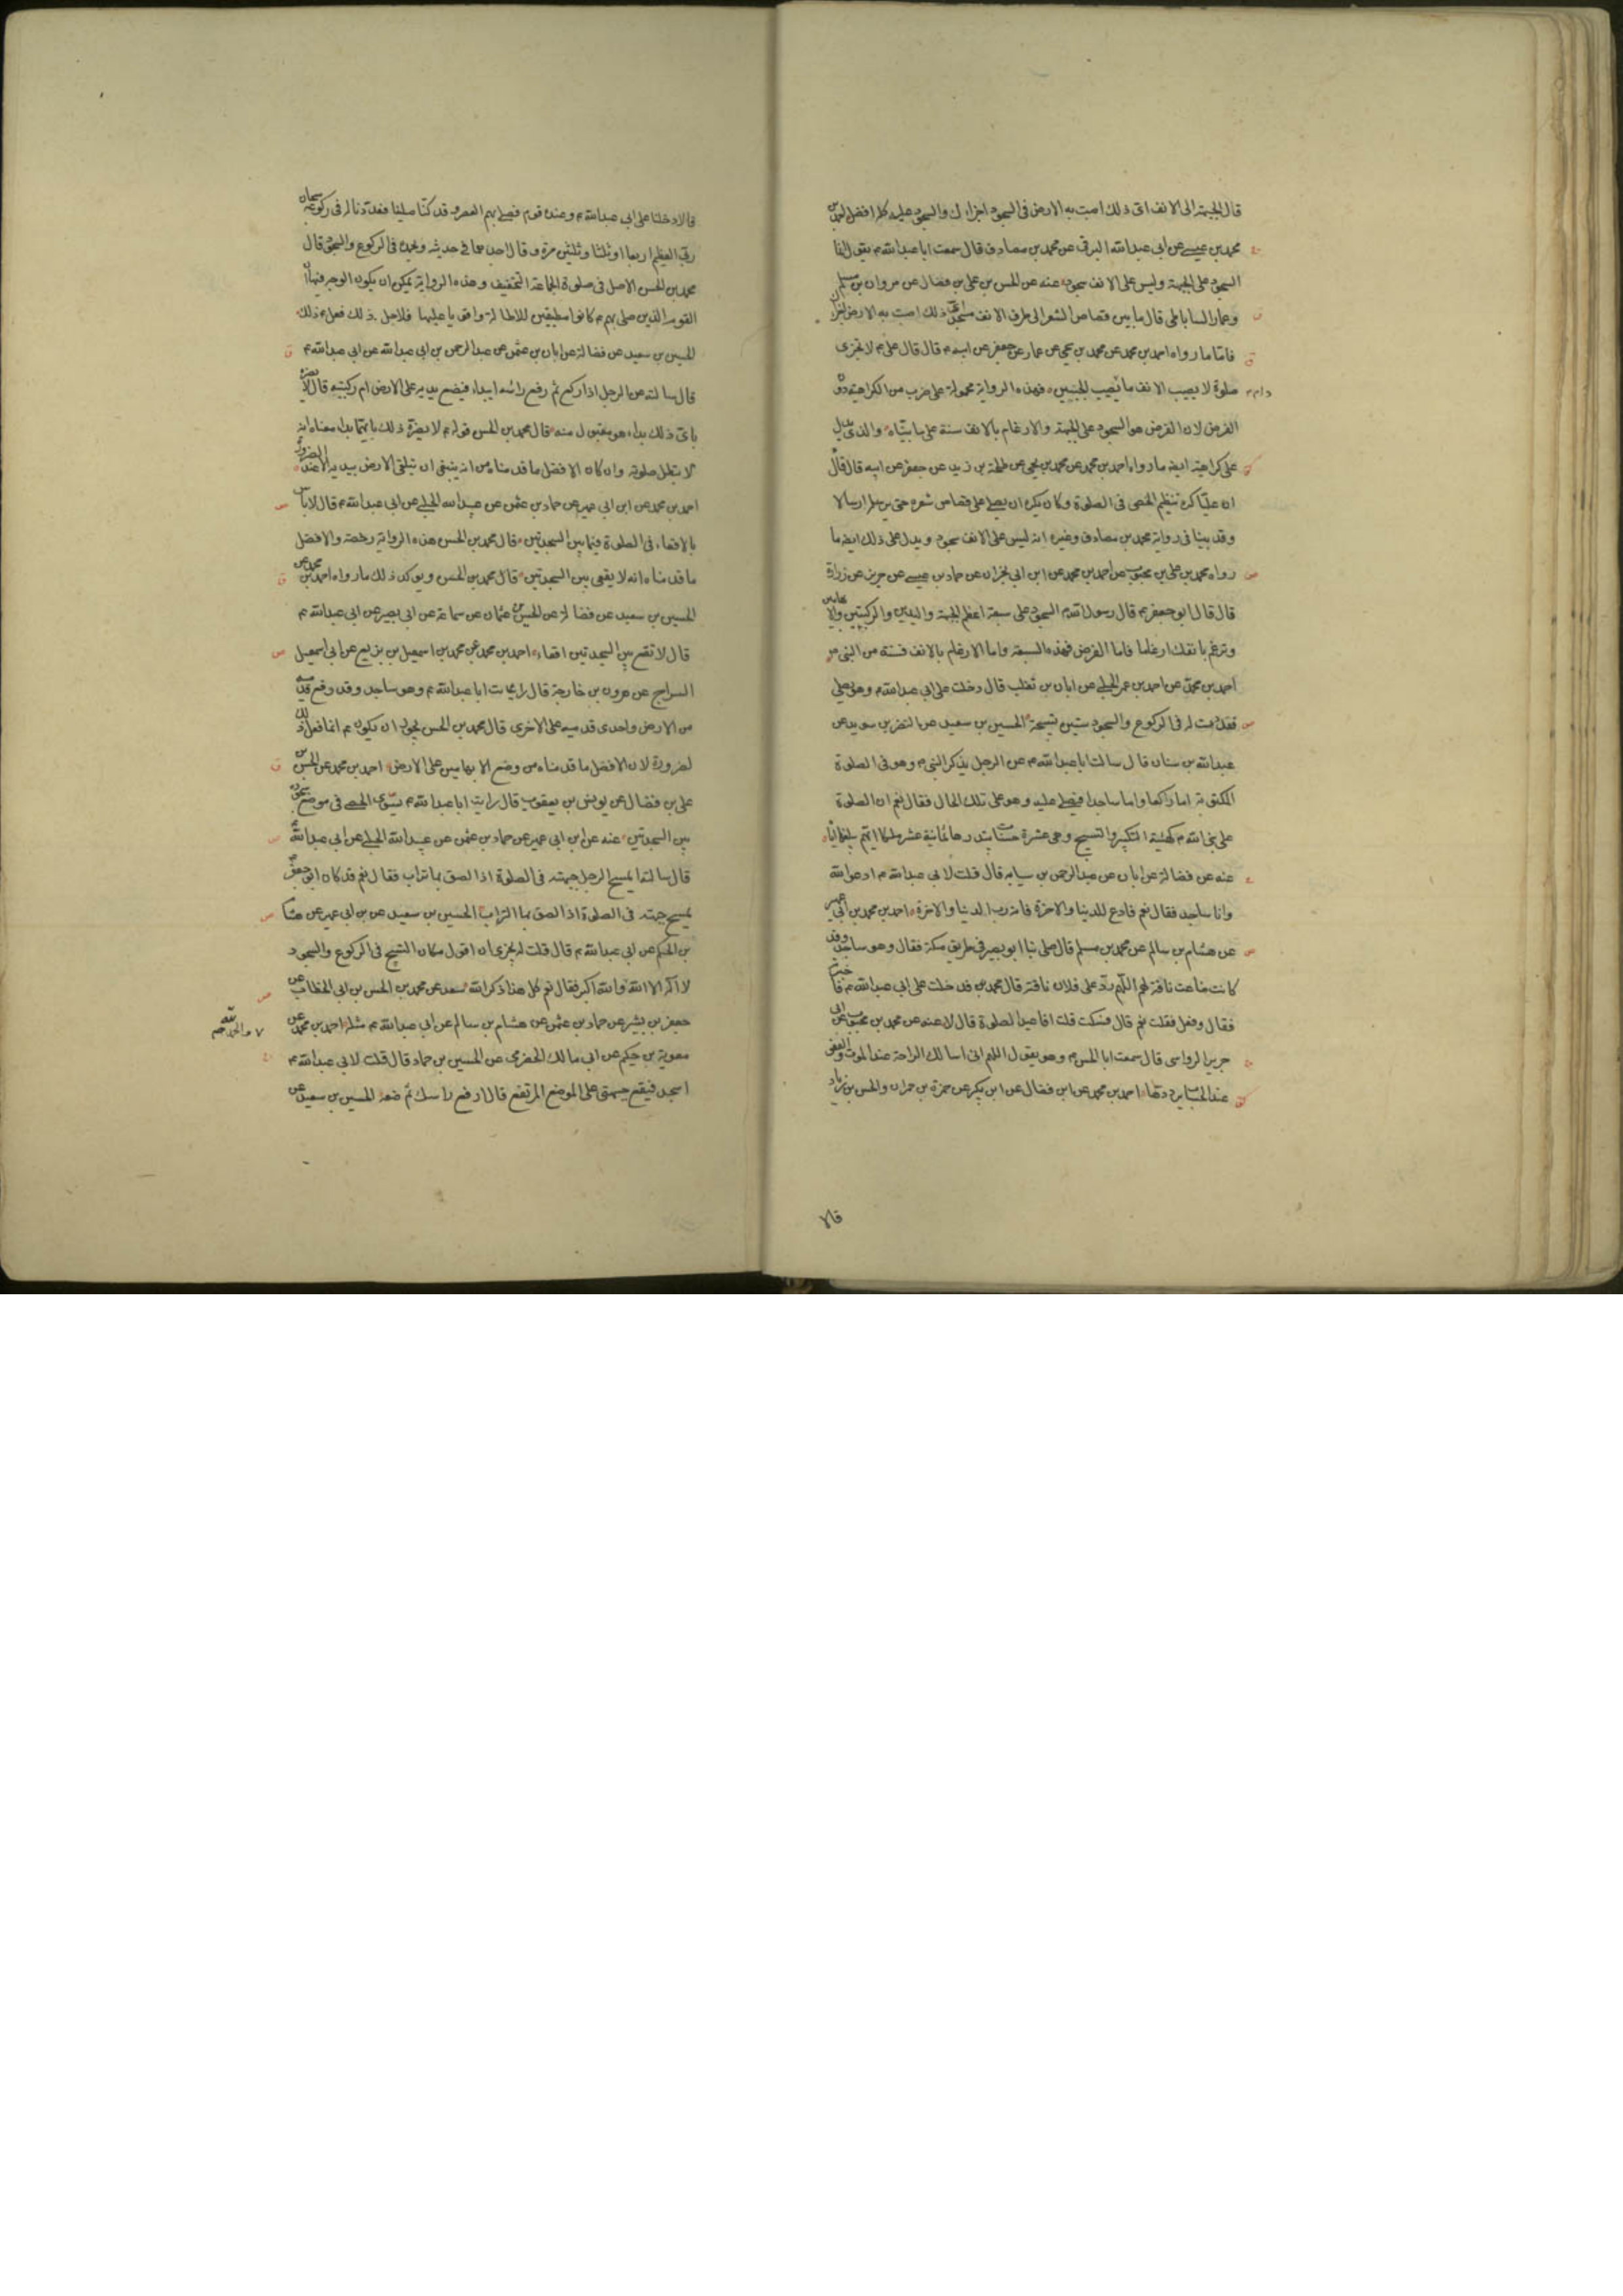 قال الجبهة الى الانف اى ذلك اصبت به الارض فى السجود اجزاك والسجود عليه كله افضل احمد بن
محمد بن عيسى عن ابى عبدالله البرقى عن محمد بن مصادف قال سمعت ابا عبدالله م يقول انما
السجود على الجبهة وليس على الانف سجود عنه عن الحسن بن على بن فضال عن مروان بن مسلم
وعمار الساباطى قال ما بين قصاص الشعر الى طرف الانف مسجد اى ذلك اصبت به الارض اجزاك
فاما ما رواه احمد بن محمد عن محمد بن يحيى عن عمار عن جعفر عن ابيه م قال قال على م لا تجزى
صلوة لا يصيب الانف ما يصيب الجبينين فهذه الرواية محمولة على ضرب من الكراهية دون
الفرض لان الفرض هو السجود على الجبهة والارغام بالانف سنة على ما بيناه والذى يدل
على كراهية ايضا ما رواه احمد بن محمد عن محمد بن يحيى عن طلحة بن زيد عن جعفر عن ابيه قال قال
ان عليا كره تنظيم الحصى فى الصلوة وكان يكره ان يصلى على قصاص شعره حتى يرسله ارسالا
وقد بينا فى رواية محمد بن مصادف وغيره انه ليس على الانف سجود ويدل على ذلك ايضا ما
رواه محمد بن على بن محبوب عن احمد بن محمد عن ابن ابى نجران عن حماد بن عيسى عن حريز عن زرارة
قال قال ابو جعفر م قال رسول الله م السجود على سبعة اعظم الجبهة واليدين والركبتين والابهامين
وترغم بانفك ارغاما فاما الفرض فهذه السبعة واما الارغام بالانف فسنة من النبى م
احمد بن محمد عن احمد بن عمر الحلبى عن ابان بن تغلب قال دخلت على ابى عبدالله م وهو يصلى
فعددت له فى الركوع والسجود ستين تسبيحة الحسين بن سعيد عن النضر بن سويد عن
عبدالله بن سنان قال سالت ابا عبدالله م عن الرجل يذكر النبى م وهو فى الصلوة
المكتوبة اما راكعا واما ساجدا فيصلى عليه وهو على تلك الحال فقال نعم ان الصلوة
على نبى الله م كهيئة التكبير والتسبيح وهى عشرة حسنات يبتدرها ثمانية عشر ملكا ايهم يبلغها اياه
عنه عن فضالة عن ابان عن عبدالرحمن بن سيابه قال قلت لابى عبدالله م ادعو الله
وانا ساجد فقال نعم فادع للدنيا والاخرة فانه رب الدنيا والاخرة احمد بن محمد بن ابى عمير
عن هشام بن سالم عن محمد بن مسلم قال صلى بنا ابو بصير فى طريق مكة فقال وهو ساجد وقد
كانت ضاعت ناقة لهم اللهم رد على فلان ناقته قال محمد بن فدخلت على ابى عبدالله م فاخبرته
فقال وفعل فقلت نعم قال فسكت قلت افاعيد الصلوة قال لا عنه عن محمد بن محبوب عن ابى
جرير الرواسى قال سمعت ابا الحسن م وهو يقول اللهم انى اسالك الراحة عند الموت والعفو
عند الحساب يرددها احمد بن محمد عن ابن فضال عن ابن بكير عن حمزة بن حمران والحسن بن زياد
قالا
قالا دخلنا على ابى عبدالله م وعنده قوم فصلى بهم العصر وقد كنا صلينا فعددنا له فى ركوعه سبحان
ربى العظيم اربعا او ثلثا وثلثين مرة وقال احدهما فى حديثه وبحمده فى الركوع والسجود قال
محمد بن الحسن الاصل فى صلوة الجماعة التخفيف وهذه الرواية يمكن ان يكون الوجه فيها ان
القوم الذين صلى بهم م كانوا مطيقين للاطالة وافويا عليها فلاجل ذلك فعل م ذلك
الحسين بن سعيد عن فضالة عن ابان بن عثمن عن عبدالرحمن بن ابى عبدالله عن ابى عبدالله م
قال سالته عن الرجل اذا ركع ثم رفع راسه ايبدا فيضع يديه على الارض ام ركبتيه قال لا يضره
باى ذلك بدا هو مقبول منه قال محمد بن الحسن قوله م لا يضره ذلك بايهما بدا معناه انه
لا يبطل صلوته وان كان الافضل ما قدمناه من انه ينبغى ان يتلقى الارض بيديه الا عند الضرورة
احمد بن محمد عن ابن ابى عمير عن حماد بن عثمن عن عبيدالله الحلبى عن ابى عبدالله م قال لا باس
بالاقعاء فى الصلوة فيما بين السجدتين قال محمد بن الحسن هذه الرواية رخصة والافضل
ما قدمناه انه لا يقعى بين السجدتين قال محمد بن الحسن ويوكد ذلك ما رواه احمد بن محمد عن
الحسين بن سعيد عن فضالة عن الحسين بن عثمان عن سماعة عن ابى بصير عن ابى عبدالله م
قال لا تقع بين السجدتين اقعاء احمد بن محمد عن محمد بن اسمعيل بن بزيع عن ابى اسمعيل
السراج عن هرون بن خارجة قال رايت ابا عبدالله م وهو ساجد وقد رفع قدميه
من الارض واحدى قدميه على الاخرى قال محمد بن الحسن يجوز ان يكون م انما فعل ذلك
لضرورة لان الافضل ما قدمناه من وضع الابهامين على الارض احمد بن محمد عن الحسن بن
على بن فضال عن يونس بن يعقوب قال رايت ابا عبدالله م يسوى الحصى فى موضع سجوده
بين السجدتين عنه عن ابن ابى عمير عن حماد بن عثمن عن عبيدالله الحلبى عن ابى عبدالله م
قال سالته ايمسح الرجل جبهته فى الصلوة اذا لصق بها تراب فقال نعم قد كان ابو جعفر م
يمسح جبهته فى الصلوة اذا لصق بها التراب الحسين بن سعيد عن بن ابى عمير عن هشام
بن الحكم عن ابى عبدالله م قال قلت له يجزى ان اقول مكان التسبيح فى الركوع والسجود
لا اله الا الله والله اكبر فقال نعم كل هذا ذكر الله سعد عن محمد بن الحسن بن ابى الخطاب عن
والحمد لله
جعفر بن بشير عن حماد بن عثمن عن هشام بن سالم عن ابى عبدالله م مثله احمد بن محمد عن
معوية بن حكيم عن ابى مالك الحضرمى عن الحسين بن حماد قال قلت لابى عبدالله م
اسجد فيقع جبهتى على الموضع المرتفع قال ارفع راسك ثم ضعه الحسين بن سعيد عن